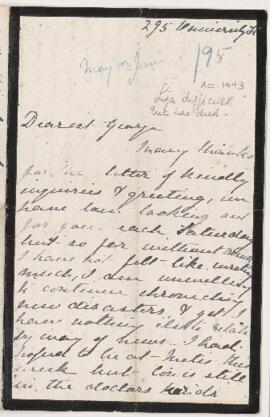 295 University St
May or June
195
Acc 1443
Lyn difficult
but has died -
Dearest George
Many thanks
for the letter of kindly
inquiries & greeting, we
have been looking out
for you each Saturday
but so far without
I have not felt like writing
much, I am unwilling
to continue chronicling
new disasters, & yet I
have nothing else to relate
by way of news. I had
hoped to be at Metis this
week but is still
in the doctors hands